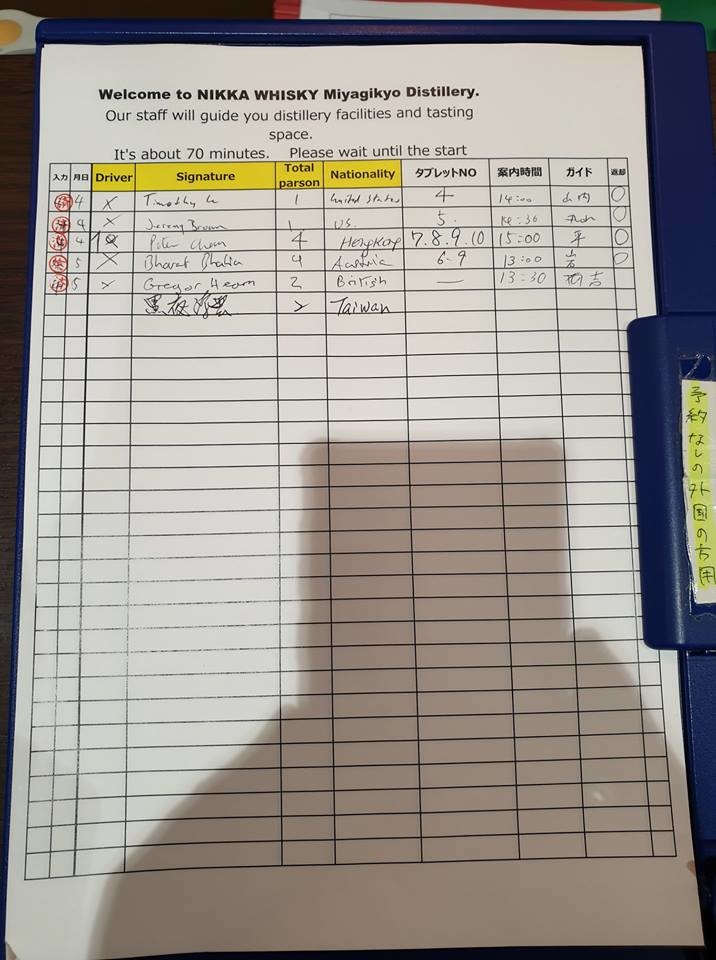 Welcome to NIKKA WHISKY Miyagikyo Distillery.
Our staff will guide you distillery facilities and tasting
space.
It's about 70 minutes. Please wait until the start
入力 月日 Driver Signature Total parson Nationality タブレットNO 案内時間 ガイド 返却
済 4 X Timothy 1 United States 4 14:00 山内 ○
済 4 X Jeremy Brown 1 US. 5. 14:30 ○
済 4 Peter Chan 4 HongKong 7.8.9.10 15:00 平 ○
済 5 X Bharat Bhatia 4 Austria 6-9 13:00 ○
済 5 X Gregor Hearn 2 British — 13:30
Taiwan
予約なしの外国の方用